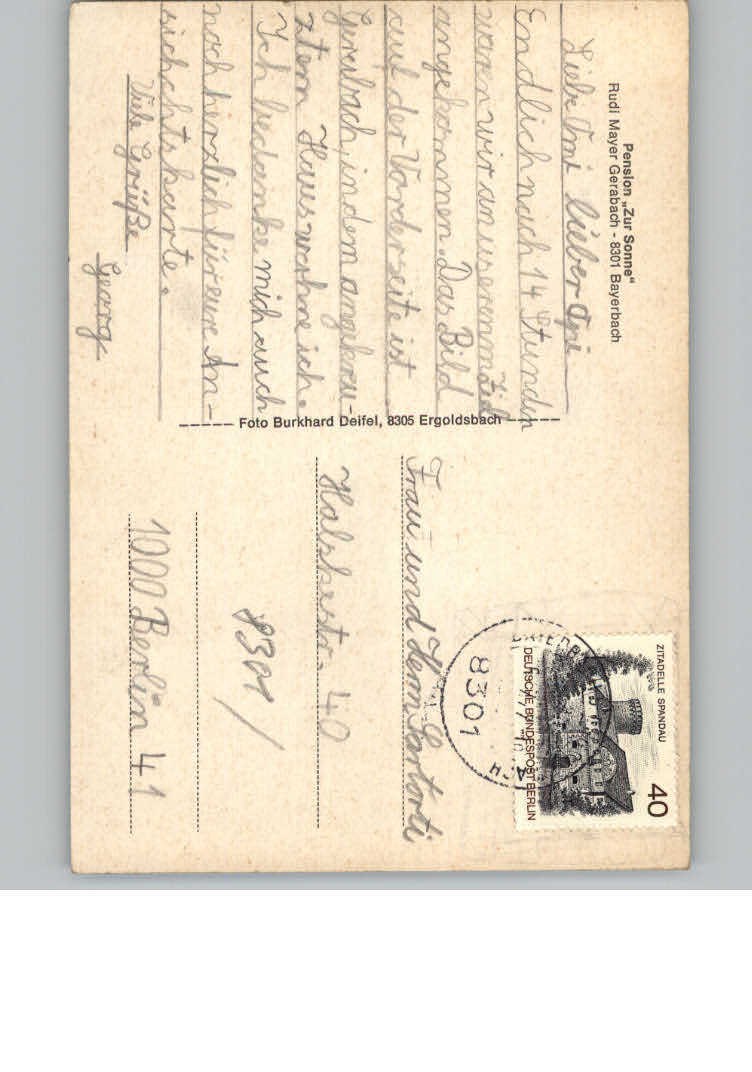 Pension „Zur Sonne“
Rudi Mayer Gerabach - 8301 Bayerbach
Liebe Omi lieber Opi
Endlich nach 14 Stunden
waren wir an unserem Ziel
angekommen. Das Bild
auf der Vorderseite ist
Gerabach, in dem angekreu-
ztem Haus wohne ich.
Ich bedanke mich auch
noch herzlich für eure An-
sichchtskarte.
Viele Grüße
Georg
Foto Burkhard Deifel, 8305 Ergoldsbach
ZITADELLE SPANDAU
40
DEUTSCHE BUNDESPOST BERLIN
8301
Frau und Herrn Sartorti
Holsteinstr. 40
8301 /
1000 Berlin 41